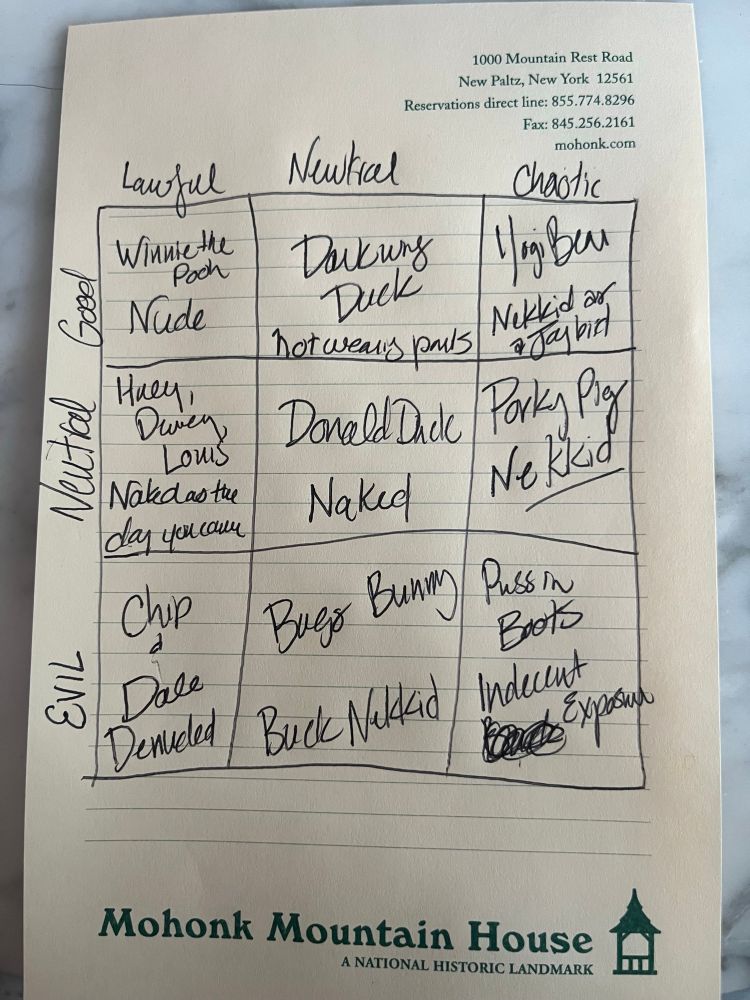 1000 Mountain Rest Road
New Paltz, New York 12561
Reservations direct line: 855.774.8296
Fax: 845.256.2161
mohonk.com
Lawful Neutral Chaotic
Good
Winnie the
Pooh
Nude
Darkwing
Duck
not wearing pants
Yogi Bear
Nekkid as
a Jaybird
Neutral
Huey,
Dewey,
Louis
Naked as the
day you came
Donald Duck
Naked
Porky Pig
Nekkid
EVIL
Chip
&
Dale
Denuded
Bugs Bunny
Buck Nekkid
Puss in
Boots
Indecent
Exposure
Mohonk Mountain House
A NATIONAL HISTORIC LANDMARK